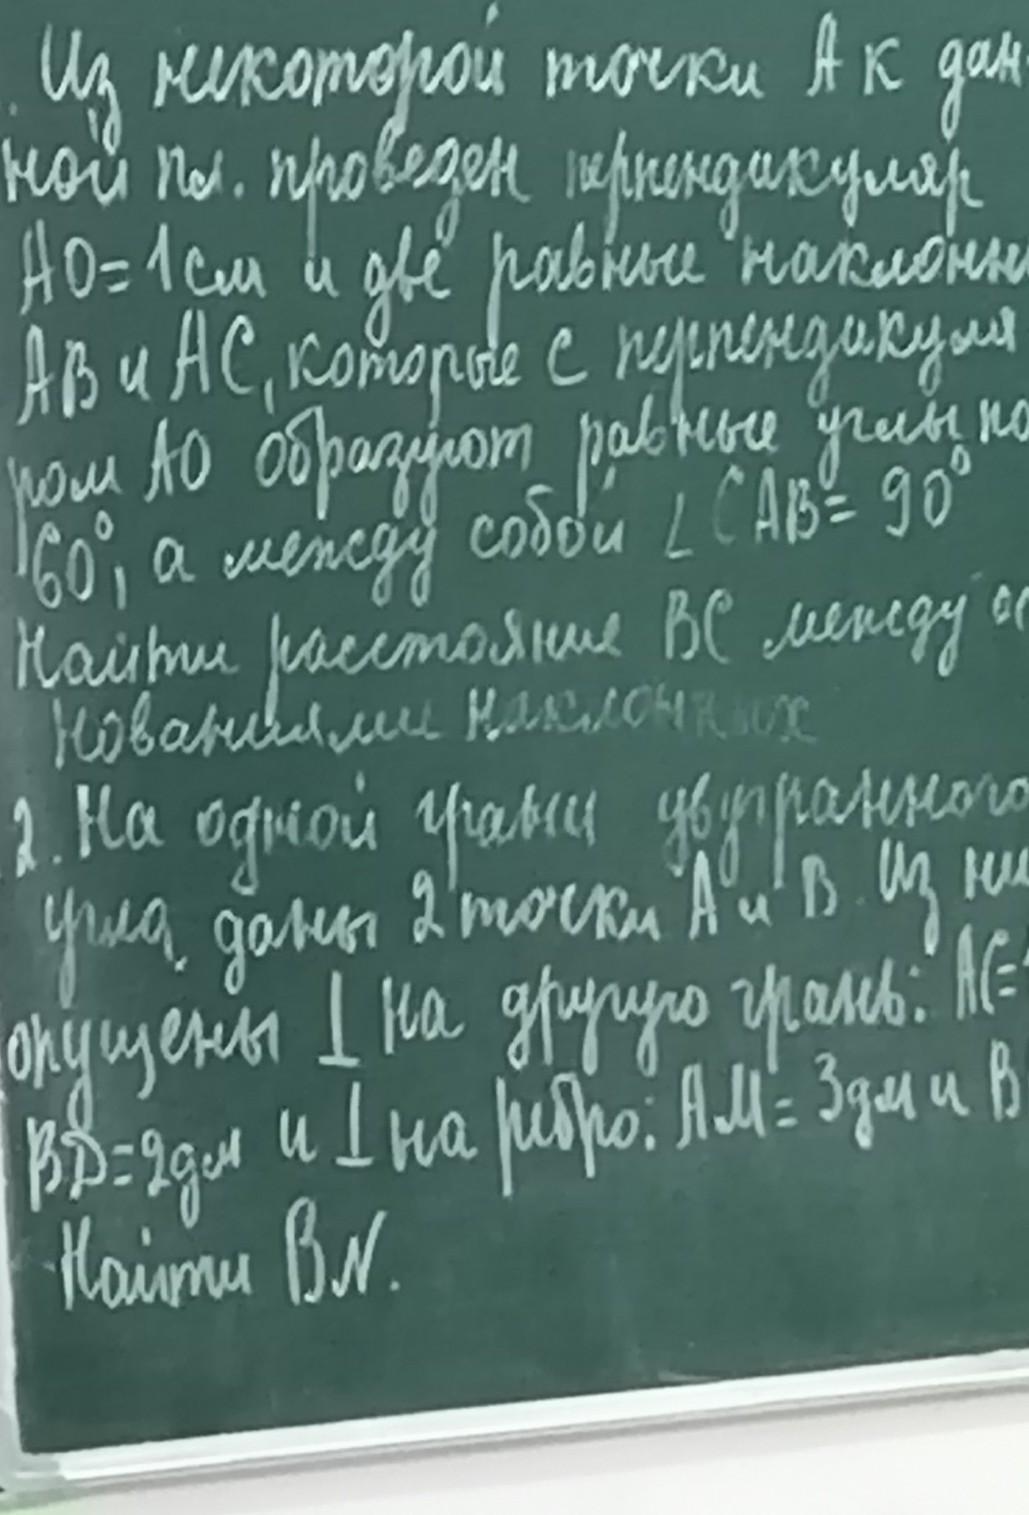 Из некоторой точки А к дан-
ной пл. проведен перпендикуляр
АО=1см и две равные наклонн
АВ и АС, которые с перпендикуля
ром АО образуют равные углы по
60°, а между собой ∠CAB=90°
Найти расстояние ВС между ос
нованиями наклонных
2. На одной грани двугранного
угла даны 2 точки А и В. Из ни
опущены ⊥ на другую грань: АС=
BD=2дм и ⊥ на ребро: АМ=3дм и В
Найти BN.